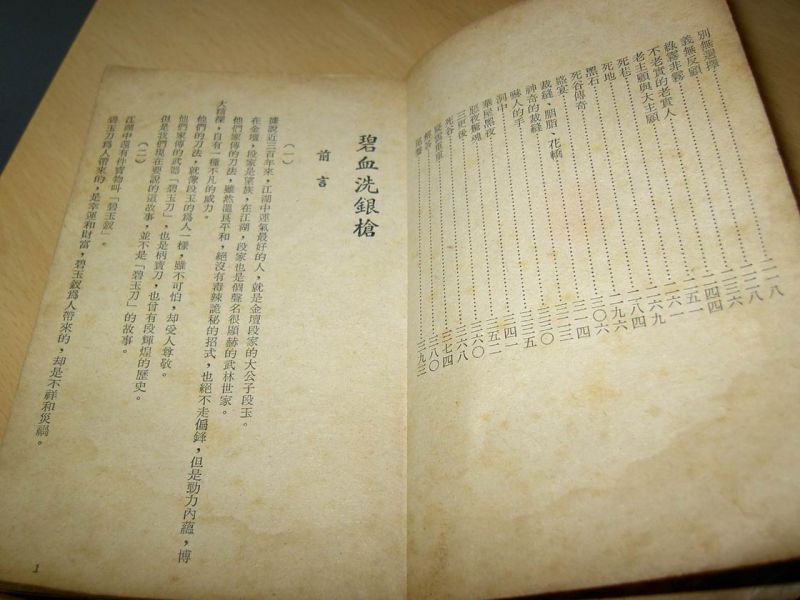 別無選擇
義無反顧
綠霧非霧
不老實的老實人
老主顧與大主顧
死巷
死地
黑石
死谷傳奇
盛宴
裁縫、胭脂、花轎
神奇的裁縫
嚇人的手
洞中
華屋黑夜
惡夜驚魂
三更後
死谷
碧血洗銀槍
前言
(一)
據說近三百年來,江湖中運氣最好的人,就是金壇段家的大公子段玉。
在金壇,段家是望族,在江湖,段家也是個聲名很顯赫的武林世家。
他們家傳的刀法,雖然溫良平和,絕沒有毒辣詭秘的招式,也絕不走偏鋒,但是勁力內蘊,博
大精深,自有一種不凡的威力。
他們的刀法,就像段玉的爲人一樣,雖不可怕,却受人尊敬。
他們家傳的武器「碧玉刀」,也是柄寶刀,也曾有段輝煌的歷史。
但是我們現在要說的這故事,並不是「碧玉刀」的故事。
(二)
江湖中還有件寶物叫「碧玉釵」。
碧玉刀爲人帶來的,是幸運和財富,碧玉釵爲人帶來的,却是不祥和災禍。
1